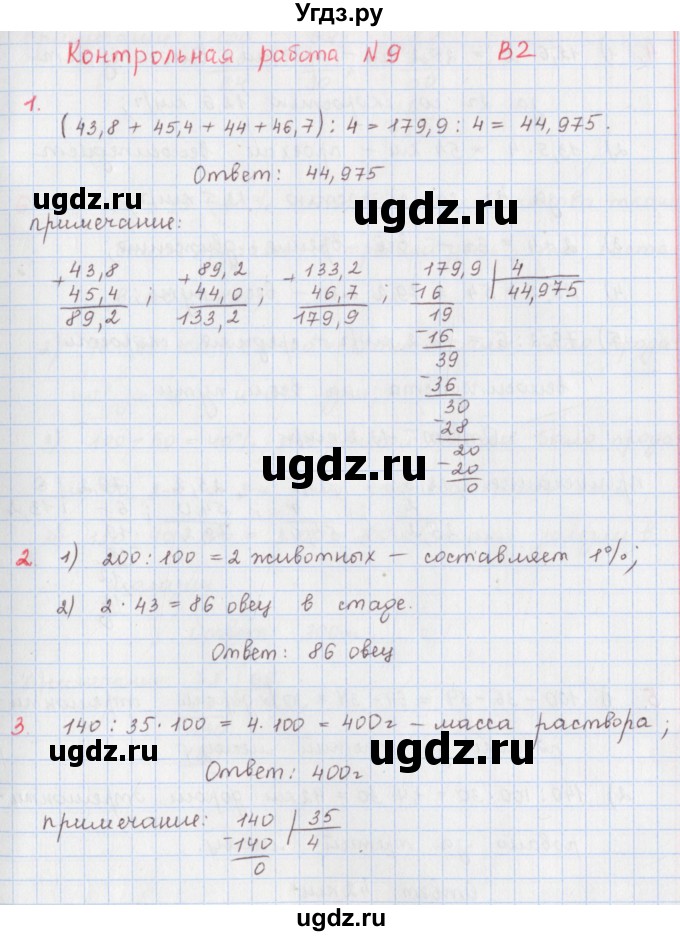 Угдз.ру
Контрольная работа №9 В2
1.
(43,8 + 45,4 + 44 + 46,7) : 4 = 179,9 : 4 = 44,975.
Ответ: 44,975
ugdz.ru ugdz.ru
примечание:
+43,8 +89,2 +133,2 179,9 | 4
45,4 ; 44,0 ; 46,7 ; -16 44,975
89,2 133,2 179,9 19
-16
39
-36
30
-28
ugdz.ru 20
-20
0
2 1) 200 : 100 = 2 животных — составляет 1%;
2) 2 · 43 = 86 овец в стаде.
ugdz.ru
Ответ: 86 овец
3. 140 : 35 · 100 = 4 · 100 = 400г — масса раствора ;
Ответ: 400г
ugdz.ru
примечание: 140 | 35
-140 4
0
ugdz.ru
ugdz.ru